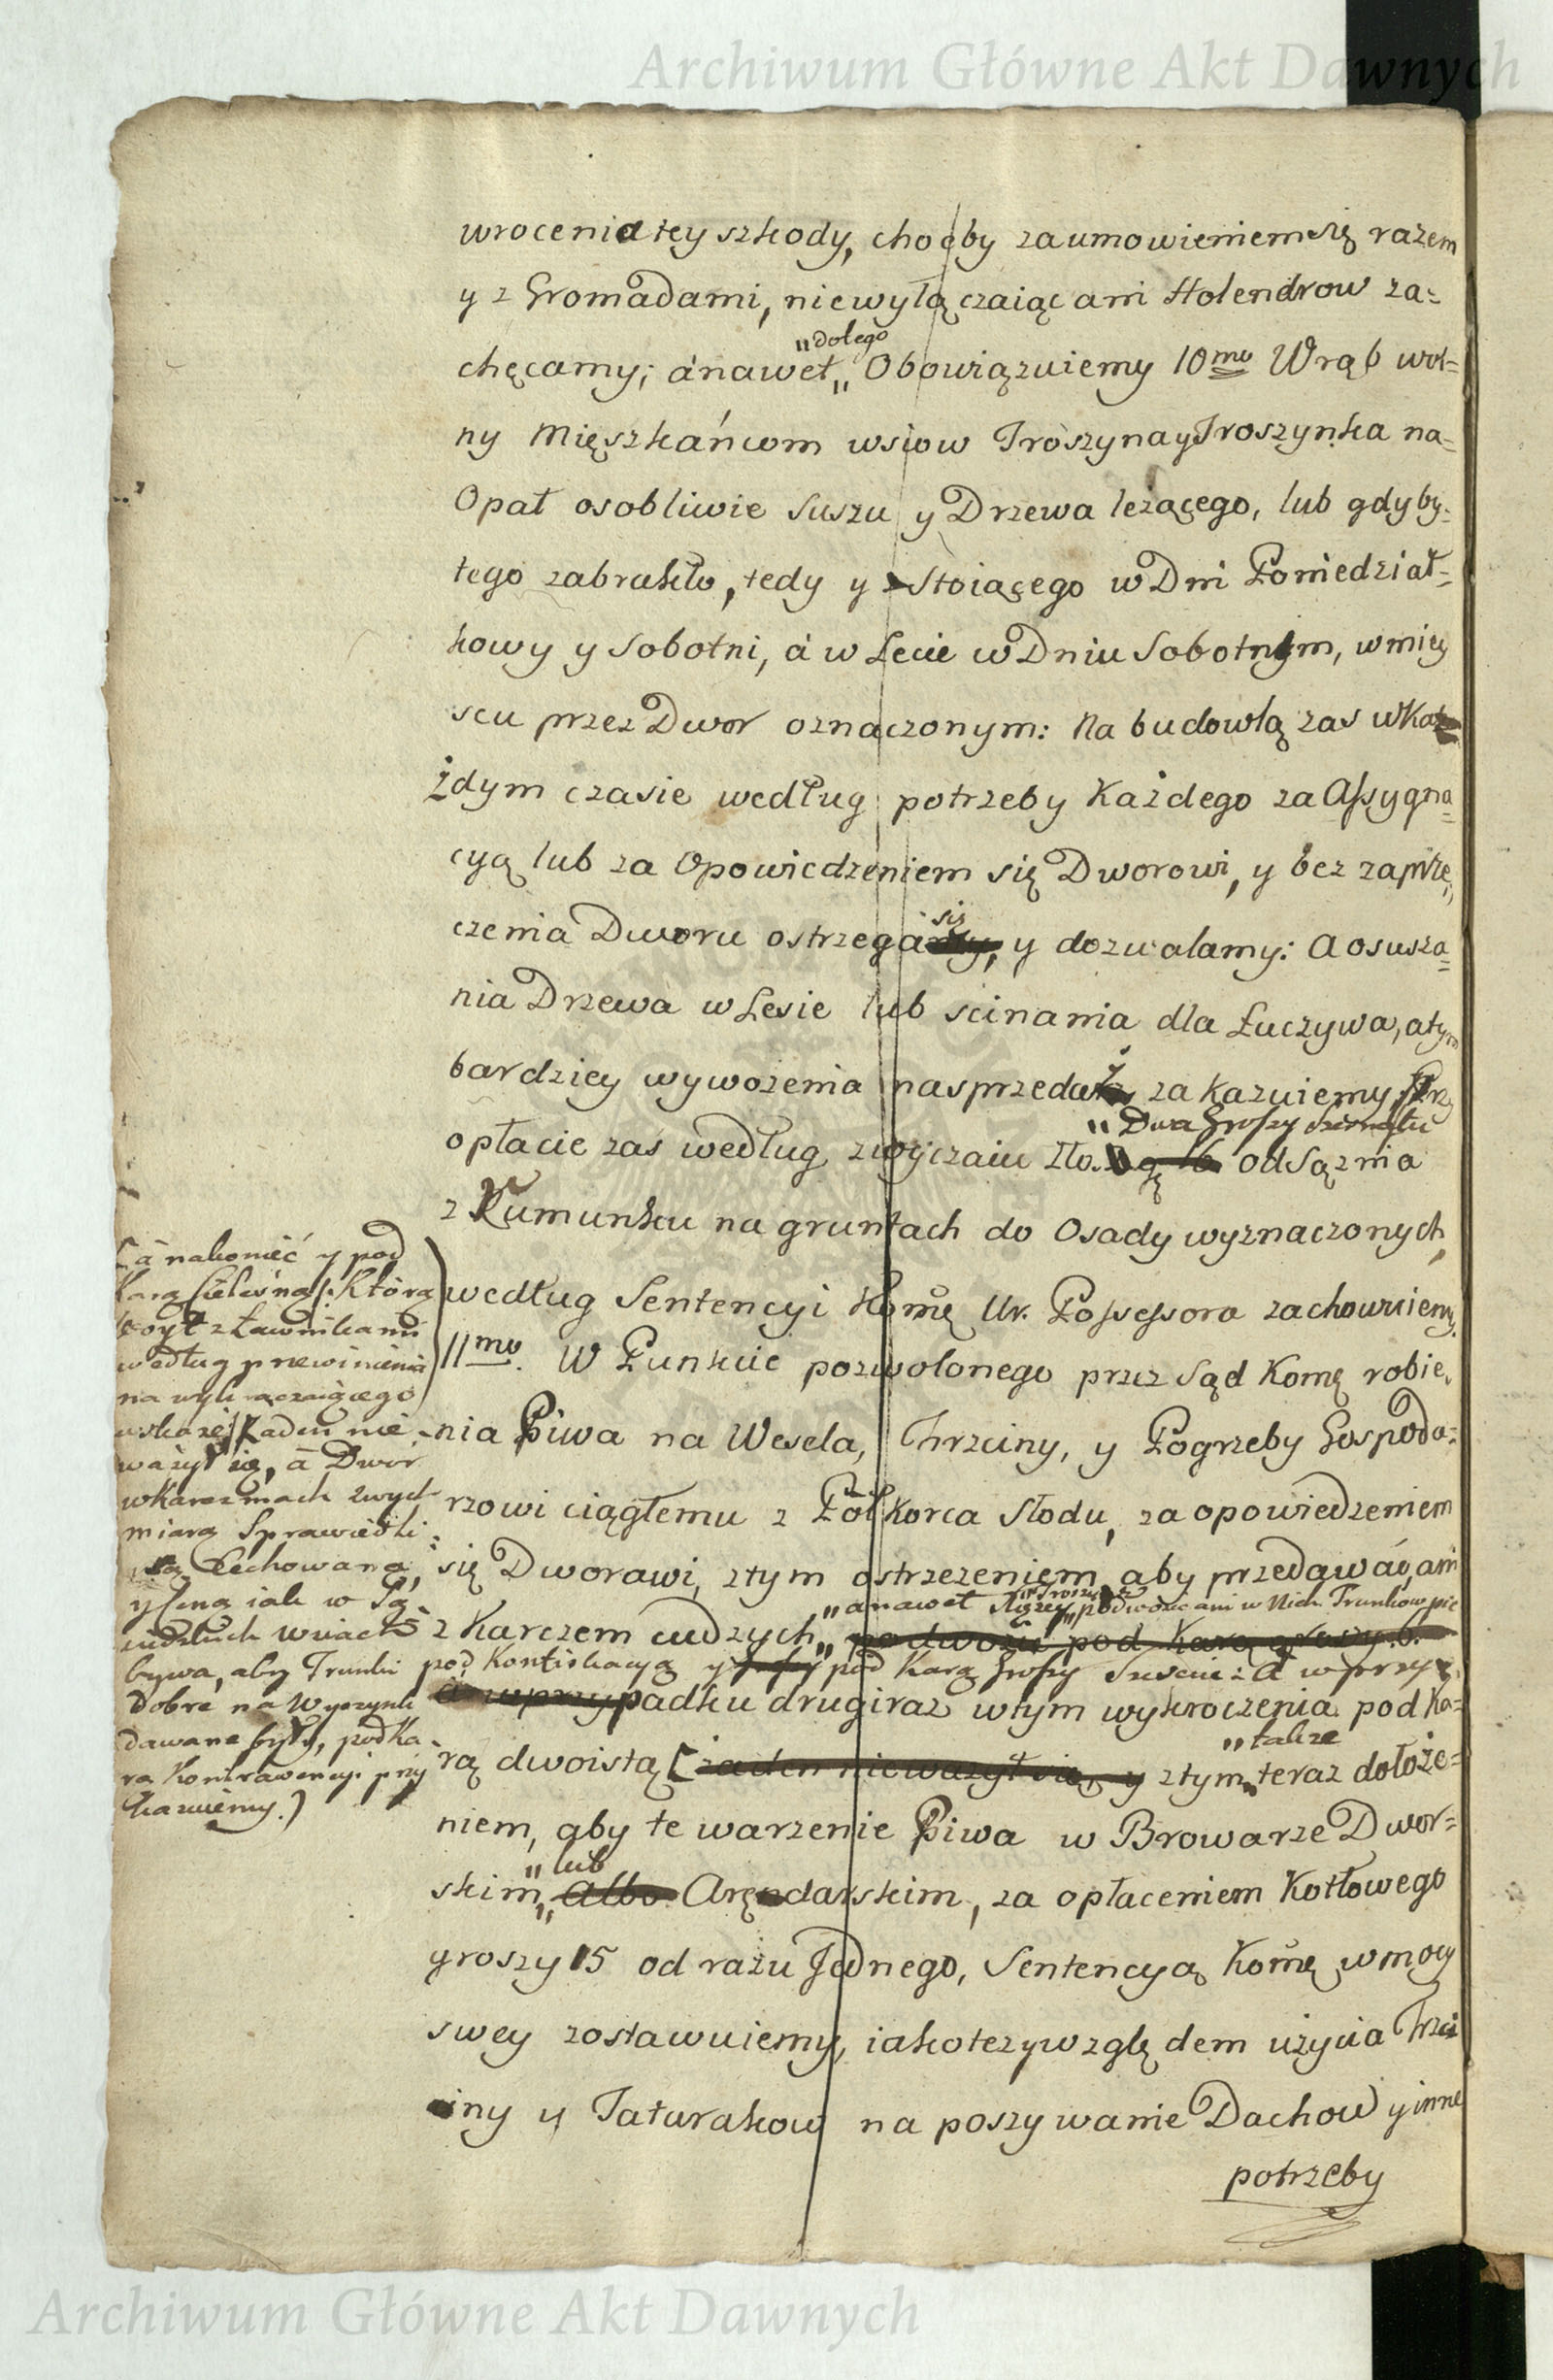 Archiwum Główne Akt Dawnych
wrocenia tey szkody, choćby za umowieniem się razem
y z Gromadami, niewyłączaiąc ani Holendrow za=
„dolego
chęcamy; á nawet „ Obowiązuiemy 10mo Wrąb wol=
ny Mięszkańcom wsiow Troszyna y Troszynka na=
Opał osobliwie suszu y Drzewa leżącego, lub gdyby=
tego zabrakło, tedy y Stoiącego w Dni Poniedział=
kowy y Sobotni, á w Lecie w Dniu Sobotnym, w miey
scu przez Dwor oznaczonym: Na budowlą zas w Ka
żdym czasie według potrzeby Każdego za Assygna=
cyą lub za Opowiedzeniem się Dworowi, y bez zaprze,
się
czenia Dworu ostrzegamy, y dozwalamy: A osusza=
nia Drzewa w Lesie lub scinania dla Łuczywa, a tym
bardziey wywożenia na sprzedaż zakazuiemy. Przy
„ Dwa Groszy
opłacie zas według zwyczaiu Zło. od Sążnia
z Kumunku na gruntach do Osady wyznaczonych,
według Sentencyi Komę Ur. Possessora zachowuiemy.
11mo. W Punkcie pozwolonego przez Sąd Komę robie,
nia Piwa na Wesela, Chrzciny, y Pogrzeby Gospoda=
rzowi ciągłemu z Pół Korca Słodu, za opowiedzeniem
się Dworawi, z tym ostrzeżeniem aby przedawać, ani
„a nawet podwozić ani w Nich Trunkow pić
z Karczem cudzych „ podwozić pod Karą groszy 6.
pod Konfiskacyą y pod Karą Groszy Sześciu z A w przy
á w przypadku drugi raz w tym wykroczenia pod Ka=
„także
rą dwoistą [żaden nieważył się, y z tym „ teraz dołoże=
niem, aby te warzenie Piwa w Browarze Dwor=
„ lub
skim, „ albo Arędarskim, za opłaceniem Kotłowego
groszy 15 od razu Jednego, Sentencyą Komę w mocy
swey zostawuiemy, iako też y względem użycia Trzci
iny y Tatarakow na poszywanie Dachow y inne
potrzeby
[á nakonieć y pod
Karą Cielesną /: Którą
Woyt z Ławnikami
według przewinienia
na wykraczaiącego
wskaże :/ Żaden nie
ważył się, á Dwor
w Karczmach zwych
miarą Sprawiedli=
wą Cechowaną,
y Ceną iak w Są
siedzkich wsiach
bywa, aby Trunki
dobre na Wyszynk
dawane były, pod Ka=
rą Kontrawencyi przy
kazuiemy.)
Archiwum Główne Akt Dawnych